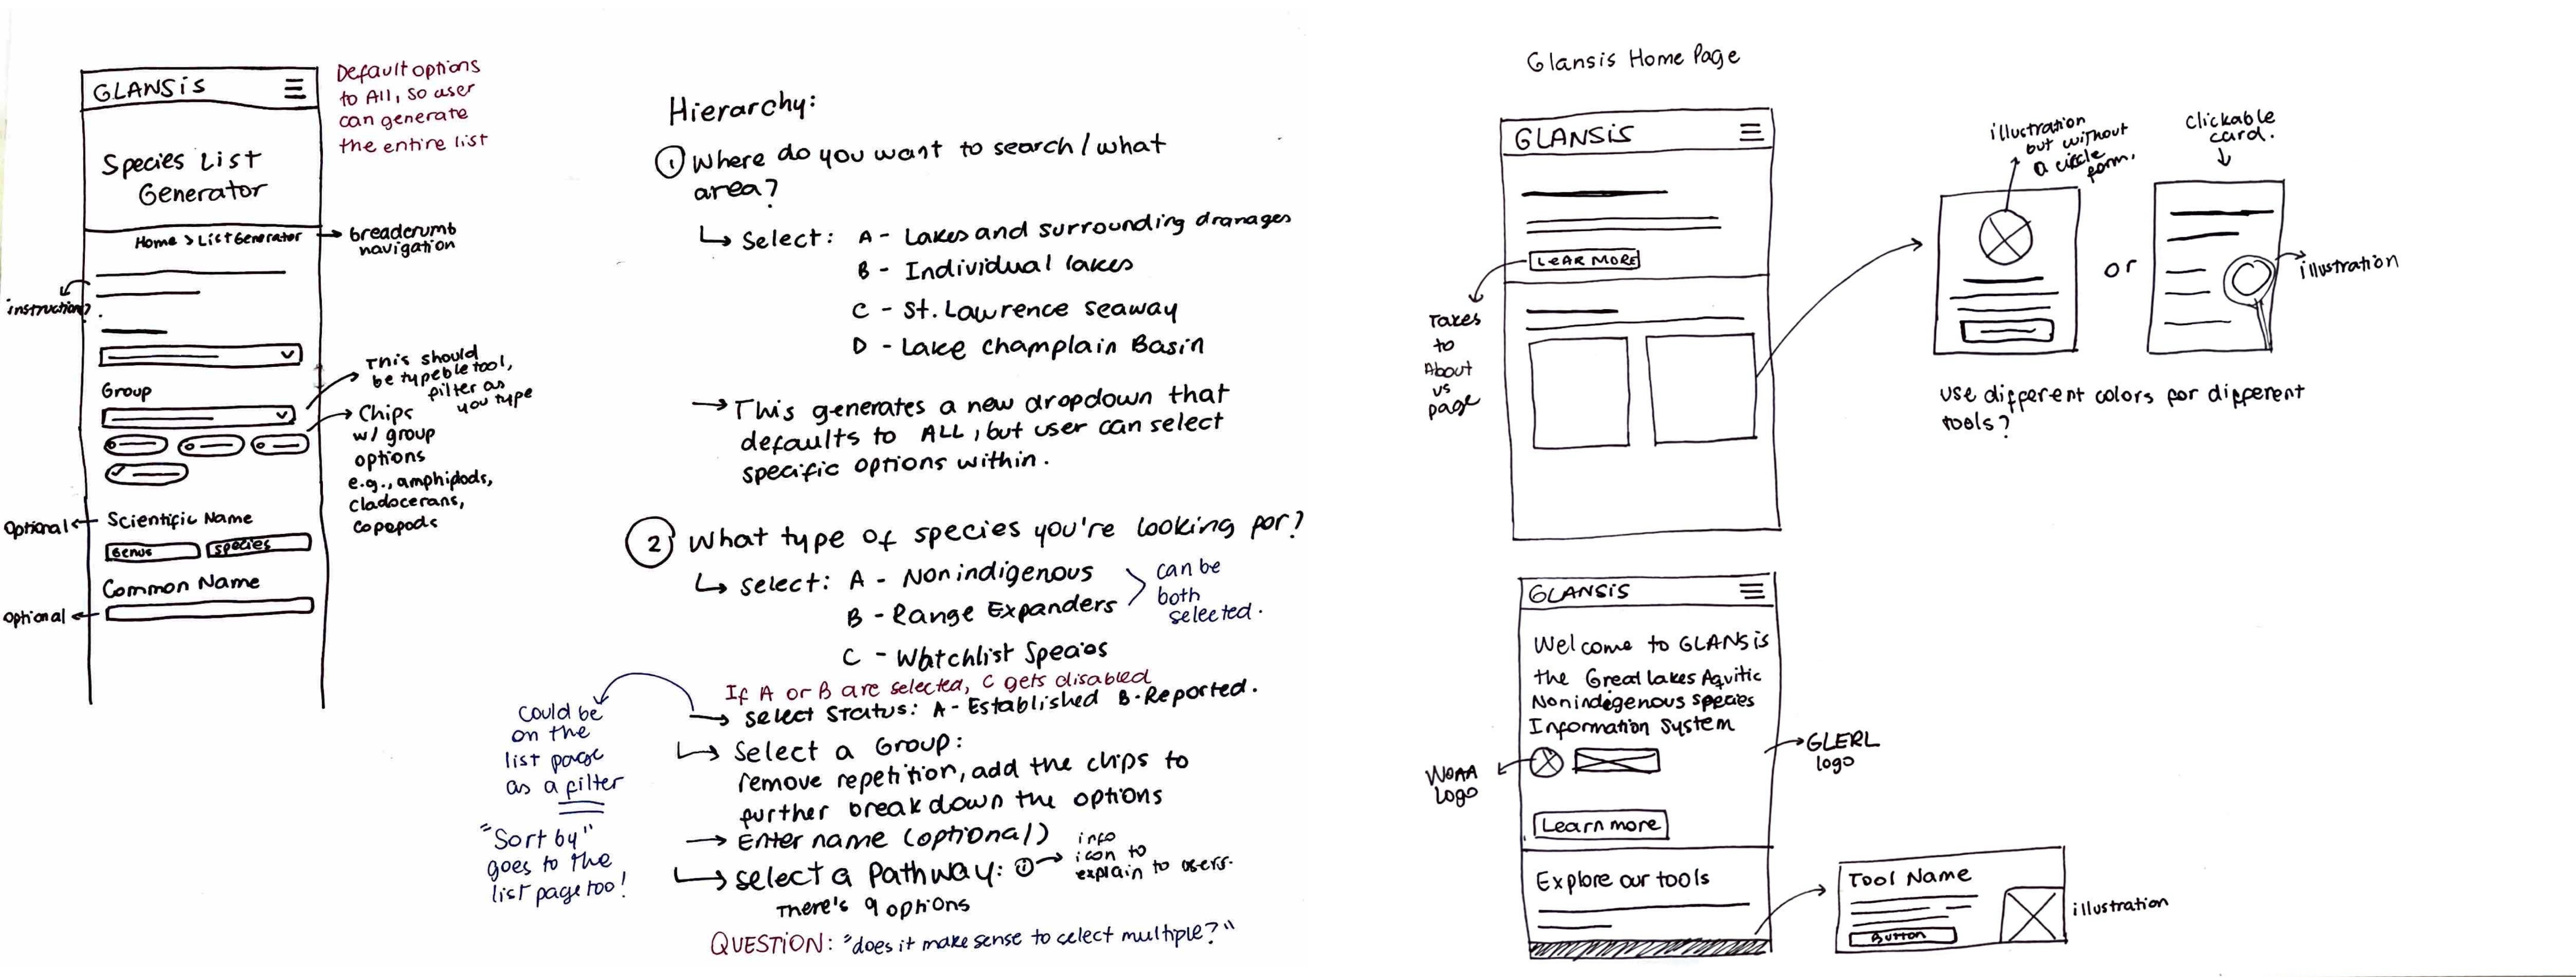 GLANSiS
Species List
Generator
Home > List Generator
breadcrumb
navigation
Default options
to All, so user
can generate
the entire list
instruction?
Group
This should
be typeble tool,
filter as
you type
Chips
w/ group
options
e.g., amphipods,
cladocerans,
copepods
Optional
Scientific Name
Genus
species
Common Name
optional
Hierarchy:
1 Where do you want to search / what
area?
Select: A - Lakes and surrounding dranages
B - Individual lakes
C - St. Lawrence seaway
D - Lake Champlain Basin
This generates a new dropdown that
defaults to ALL, but user can select
specific options within.
2 What type of species you're looking for?
select: A - Nonindigenous
B - Range Expanders
can be
both
selected.
C - Watchlist Species
If A or B are selected, C gets disabled
select status: A - Established B - Reported.
could be
on the
list page
as a filter
"Sort by"
goes to the
list page too!
Select a Group:
remove repetition, add the chips to
further break down the options
Enter name (optional)
select a Pathway: i
info
icon to
explain to users.
There's 9 options
QUESTION: "does it make sense to select multiple?"
Glansis Home Page
GLANSiS
LEAR MORE
Takes
to
About
us
page
illustration
but without
a circle
form.
or
clickable
card.
illustration
use different colors for different
tools?
GLANSiS
Welcome to GLANSis
the Great lakes Aquitic
Nonindegenous species
Information system
NOAA
Logo
GLERL
logo
Learn more
Explore our tools
Tool Name
Button
illustration